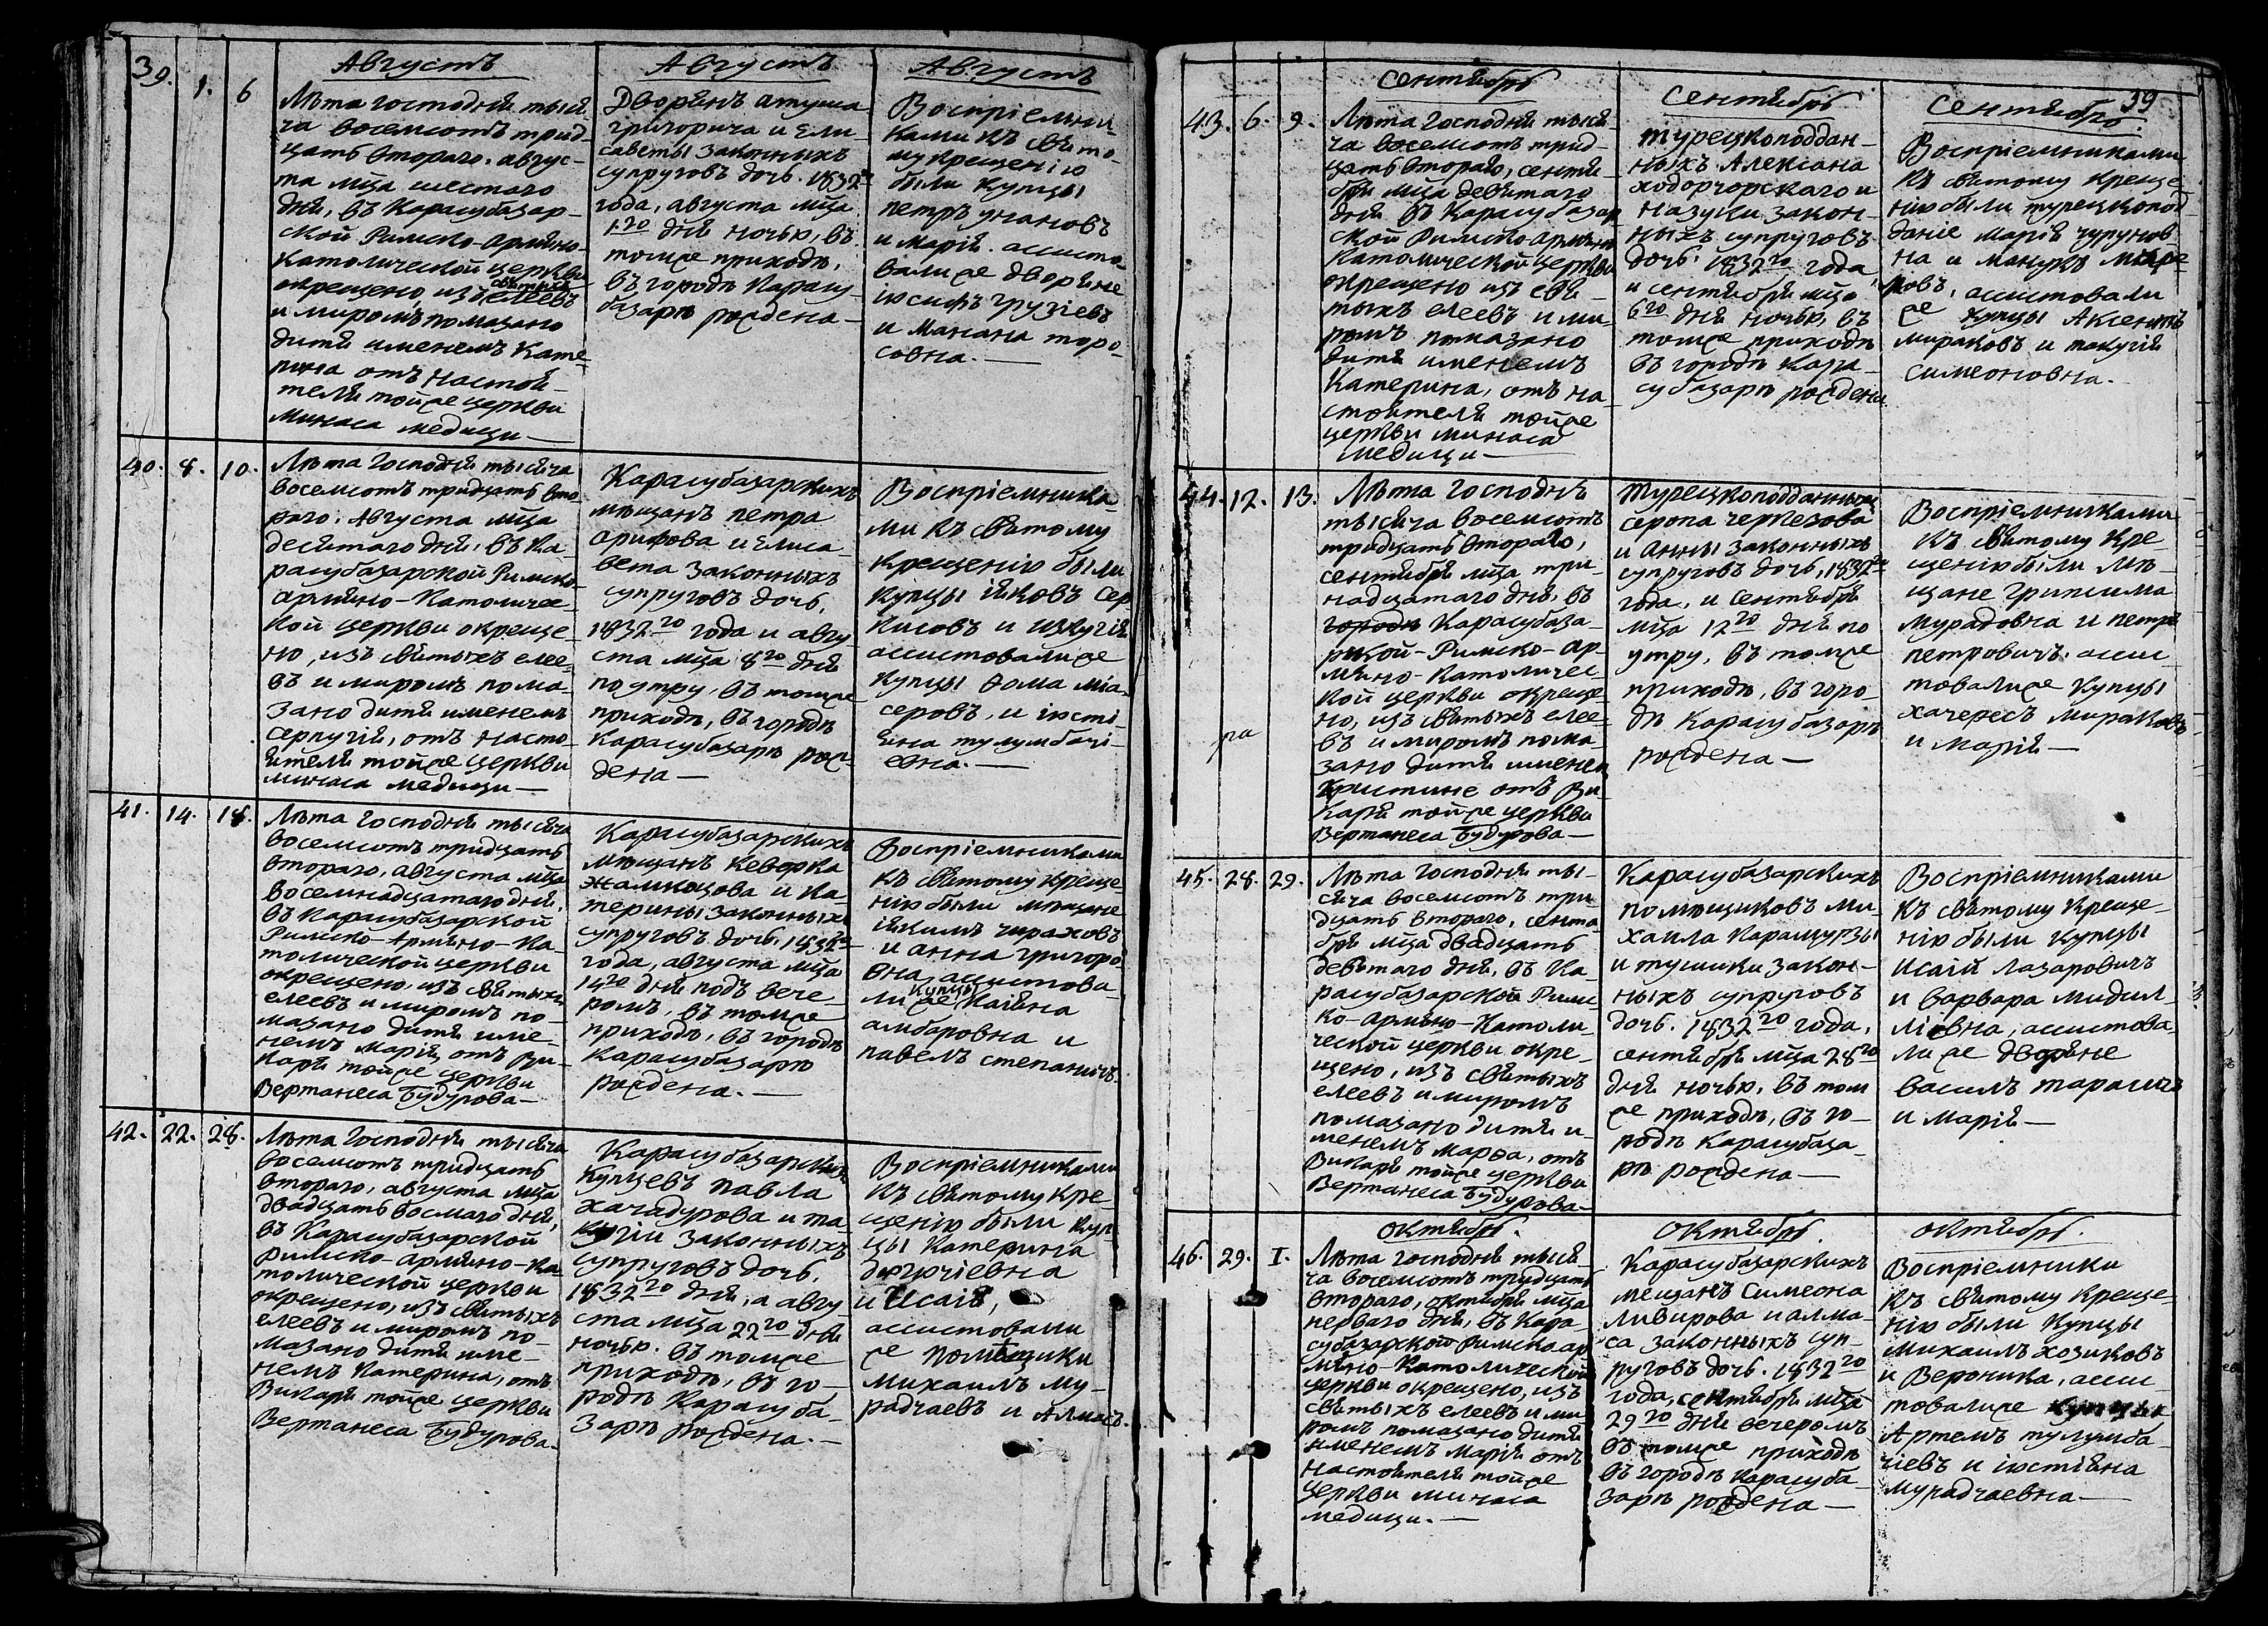 39. 1. 6
Августъ
Лѣта господня тыся
ча восемсотъ трид
цать втораго. авгус-
та мца шестаго
дня, въ Карасубазар-
ской Римско-Армяно-
католической церкви
окрещено, изъ святыхъ елеевъ
и миромъ помазано
дитя именемъ Кате-
рина отъ настоя-
теля тойже церкви
минаса медици—
Августъ
Дворянъ атуша
григорича и Ели
саветы законныхъ
супруговъ дочь. 1832го
года, августа мца
1го дня ночью, въ
томже приходѣ,
въ городѣ Карасу-
базарѣ рождена—
Августъ
Воспріемни-
ками къ свято-
му крещенію
были купцы
петръ унановъ
и Марія. ассисто
вали же дворяне
іюсифъ грузіевъ
и Манана торо-
совна.—
40. 8. 10.
Лѣта Господня тысяча
восемсотъ тридцать вто
раго. Августа мца
десятаго дня, въ Ка
расубазарской Римско
армяно-Католичес-
кой церкви окреще-
но, изъ святыхъ елее-
въ и миромъ пома-
зано дитя именемъ
серпугія, отъ насто-
ятеля тойже церкви
минаса медици—
Карасубазарскихъ
мѣщанъ петра
арифова и Елиса-
вета законныхъ
супруговъ дочь,
1832го года и авгу
ста мца 8го дня
поутру, въ томже
приходѣ, въ городѣ
Карасубазарѣ рож-
дена—
Воспріемника-
ми къ святому
крещенію были
купцы яковъ сер
кисовъ и изкугія
ассистовалиже
купцы Ѳома міа-
серовъ, и іюсті-
яна тулумбачі-
евна.—
41. 14. 18.
Лѣта Господня тысяча
восемсотъ тридцать
втораго, августа мца
восемнадцатаго дня,
въ Карасубазарской
Римско-Армяно-Ка-
толической церкви
окрещено, изъ святыхъ
елеевъ и миромъ по-
мазано дитя име-
немъ Марія, отъ Ви-
каря тойже церкви
Вертанеса Будурова—
Карасубазарскихъ
мѣщанъ Кеворка
жамкоцова и Ка-
терины законныхъ
супруговъ дочь, 1832го
года, августа мца
14го дня подъ вече-
ромъ, въ томже
приходѣ, въ городѣ
Карасубазарѣ
рождена.—
Воспріемниками
къ святому креще-
нію были мѣщане
якимъ чираховъ
и анна григоро
вна, ассистова-
ли же купцы Каіяна
амбаровна и
павелъ степаничъ.
42. 22. 28.
Лѣта Господня тысяча
восемсотъ тридцать
втораго, августа мца
двадцать восмаго дня,
въ Карасубазарской
римско-армяно-Ка-
толической церкви
окрещено, изъ святыхъ
елеевъ и миромъ по-
мазано дитя име-
немъ Катерина, отъ
Викаря тойже церкви
Вертанеса Будурова-
Карасубазарскихъ
Купцевъ павла
хачадурова и та
кугіи законныхъ
супруговъ дочь,
1832го дня, а авгу
ста мца 22го дня
ночью. въ томже
приходѣ, въ го-
родѣ Карасуба-
зарѣ рождена.—
Воспріемниками
къ святому кре-
щенію были куп
цы Катерина
дюгрчіевна
и Исаія,
ассистовали
же помѣщики
михаилъ му-
радчаевъ и Алмасъ.
39
43. 6. 9.
Сентябрь
Лѣта Господня тыся
ча восемсотъ трид-
цать втораго, сентя-
бря мца девятаго
дня въ Карасубазар
ской Римско-армяно
Католической церкви
окрещено изъ свя-
тыхъ елеевъ и ми-
ромъ помазано
дитя именемъ
Катерина, отъ на-
стоятеля тойже
церкви минаса
медици—
Сентябрь
турецкоподдан-
ныхъ Алексана
ходорчорскаго и
назуки закон-
ныхъ супруговъ
дочь. 1832го года
и сентября мца
6го дня ночью, въ
томже приходѣ
въ городѣ Кара-
субазарѣ рождена
Сентябрь.
Воспріемниками
къ святому креще-
нію были турецкопод
даные Марія чурунов
на и Манукъ Мира
ковъ, ассистовали
же купцы Аксентъ
мираковъ и такугія
симеоновна.
44. 12. 13.
Лѣта Господнѣ
тысяча восемсотъ
тридцать втораго,
сентября мца три-
надцатаго дня, въ
городѣ Карасубаза-
рской-Римско-ар-
мяно-Католичес-
кой церкви окреще-
но, изъ святыхъ елее-
въ и миромъ пома-
зано дитя именем
Христине отъ Ви-
каря тойже церкви
Вертанеса Будурова—
ра
Турецкоподданныхъ
серопа черкезова
и Анны законныхъ
супруговъ дочь, 1832го
года, и сентября
мца 12го дня по
утру, въ томже
приходѣ, въ горо-
дѣ Карасубазарѣ
рождена—
Воспріемниками
къ святому кре-
щенію были мѣ-
щане грипсима
мурадовна и петръ
петровичъ. асси-
товалиже купцы
хачересъ мираковъ
и Марія—
45. 28. 29.
Лѣта Господня ты-
сяча восемсотъ три-
дцать втораго, сентя
бря мца двадцать
девятаго дня, въ Ка
расубазарской Римс-
ко-армяно-Католи-
ческой церкви окре-
щено, изъ святыхъ
елеевъ и миромъ
помазано дитя и-
менемъ марѳа, отъ
Викаря тойже церкви
Вертанеса Будурова-
Карасубазарскихъ
помѣщиковъ Ми-
хаила Карамурзы
и тушики закон-
ныхъ супруговъ
дочь. 1832го года,
сентября мца 28го
дня ночью, въ том
же приходѣ, въ го-
родѣ Карасубаза-
рѣ рождена—
Воспріемниками
къ святому креще-
нію были купцы
исаія лазаровичъ
и варвара мидил-
ліевна, ассистова-
ли же дворяне
василъ тарасичъ
и марія—
46. 29. I.
Октябрь.
Лѣта господня тыся
ча восемсотъ тридцать
втораго, октября мца
перваго дня, въ Кара-
субазарской Римско ар
мяно-Католической
церкви окрещено, изъ
святыхъ елеевъ и ми
ромъ помазано дитя
именемъ Марія отъ
настоятеля тойже
церкви минаса
медици.—
Октябрь.
Карасубазарскихъ
мещанъ Симеона
ливирова и алма-
са законныхъ суп-
руговъ дочь. 1832го
года, сентября мца
29го дня вечеромъ
въ томже приходѣ
въ городѣ Карасуба
зарѣ рождена—
Октябрь.
Воспріемники
къ святому креще-
нію были купцы
михаилъ хозиковъ
и Вероника, асси-
товалиже купцы
Артемъ тулумба-
чіевъ и іюстіяна
мурадчаевна—